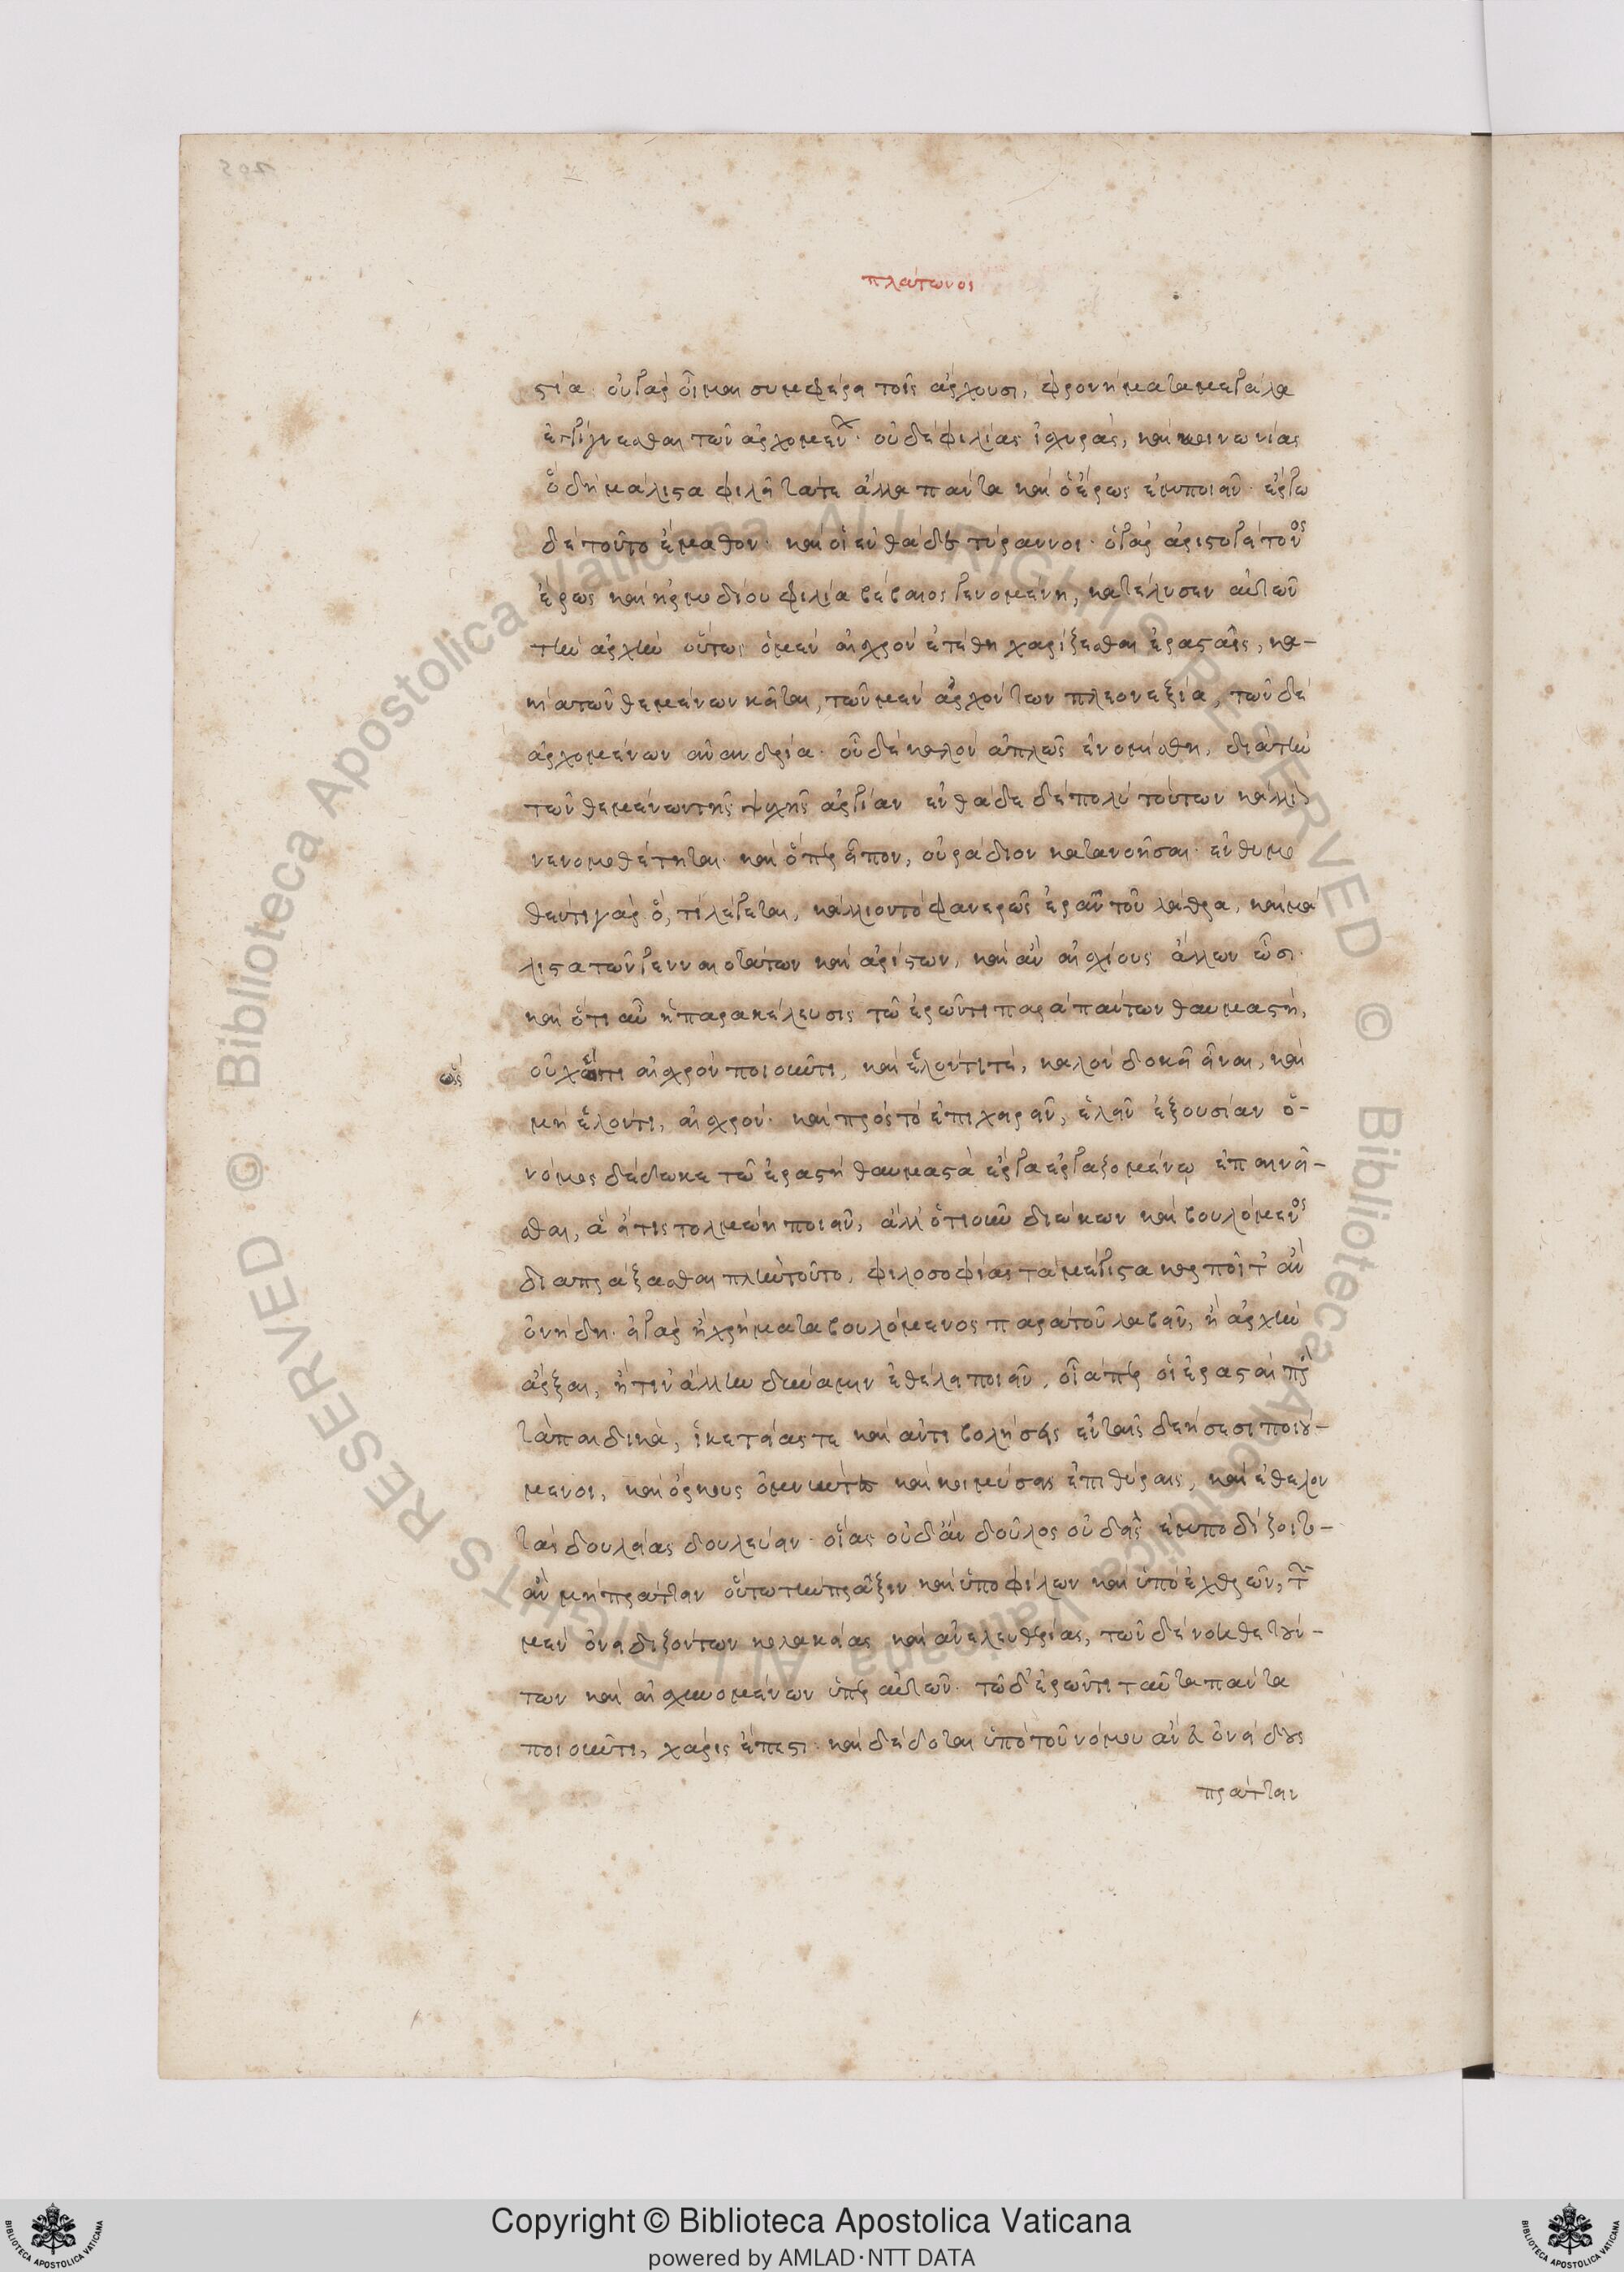 πλάτωνος
στία· οὐ γὰρ οἶμαι συμφέρει τοῖς ἄρχουσι, φρονήματα μεγάλα
ἐγγίγνεσθαι τῶν ἀρχομένων· οὐδὲ φιλίας ἰσχυρὰς, καὶ κοινωνίας
ὃ δὴ μάλιστα φιλεῖ τά τε ἄλλα πάντα καὶ ὁ ἔρως ἐμποιεῖν· ἔργω
δὲ τοῦτο ἔμαθον· καὶ οἱ ἐνθάδε τύραννοι· ὁ γὰρ ἀριστογείτονος
ἔρως καὶ ἡ ἁρμοδίου φιλία βέβαιος γενομένη, κατέλυσεν αὐτῶν
τὴν ἀρχὴν οὕτως ὃ μὲν αἰσχρὸν ἐτέθη χαρίζεσθαι ἐρασταῖς, κα-
κία τῶν θεμένων κεῖται, τῶν μὲν ἀρχόντων πλεονεξία, τῶν δὲ
ἀρχομένων ἀνανδρία· οὗ δὲ καλὸν ἁπλῶς ἐνομίσθη, διὰ τὴν
τῶν θεμένων τῆς ψυχῆς ἀργίαν ἐνθάδε δὲ πολὺ τούτων κάλλιον
νενομοθέτηται· καὶ ὅπερ εἶπον, οὐ ῥάδιον κατανοῆσαι· ἐνθυμη
θέντι γὰρ ὅ, τι λέγεται, κάλλιον τὸ φανερῶς ἐρᾶν τοῦ λάθρα, καὶ μά
λιστα τῶν γενναιοτάτων καὶ ἀρίστων, κἂν αἰσχίους ἄλλων ὦσι·
καὶ ὅτι αὖ ἡ παρακέλευσις τῶ ἐρῶντι παρὰ πάντων θαυμαστὴ,
οὐχ ὅτι αἰσχρὸν ποιοῦντι, καὶ ἑλόντι τὲ, καλὸν δοκεῖ εἶναι, καὶ
μὴ ἑλόντι, αἰσχρὸν· καὶ πρὸς τὸ ἐπιχειρεῖν, ἑλεῖν ἐξουσίαν ὁ-
νόμος δέδωκε τῶ ἐραστῆ θαυμαστὰ ἔργα ἐργαζομένῳ ἐπαινεῖ-
σθαι, ἃ εἴ τις τολμώη ποιεῖν, ἄλλ' ὁτιοῦν διώκων καὶ βουλόμενος
διαπράξασθαι πλὴν τοῦτο, φιλοσοφίας τὰ μέγιστα καρποῖτ' ἂν
ὀνείδη· εἰ γὰρ ἢ χρήματα βουλόμενος παρά του λαβεῖν, ἢ ἀρχὴν
ἄρξαι, ἤ τιν' ἄλλην δύναμιν ἐθέλει ποιεῖν, οἷάπερ οἱ ἐρασταὶ πρὸς
τὰ παιδικὰ, ἱκετείας τε καὶ ἀντιβολήσεις ἐν ταῖς δεήσεσι ποιού-
μενοι, καὶ ὅρκους ὀμνύντες καὶ κοιμήσεις ἐπὶ θύραις, καὶ ἐθέλον
τας δουλείας δουλεύειν· οἵας οὐδ' ἂν δοῦλος οὐδεὶς ἐμποδίζοιτο-
ἂν μὴ πράττειν οὕτω τὴν πρᾶξιν καὶ ὑπὸ φίλων καὶ ὑπὸ ἐχθρῶν, τῶν
μὲν ὀνειδιζόντων κολακείας καὶ ἀνελευθερίας, τῶν δὲ νουθετούν-
των καὶ αἰσχυνομένων ὑπὲρ αὐτῶν· τῶ δ' ἐρῶντι ταῦτα πάντα
ποιοῦντι, χάρις ἔπεστι· καὶ δέδοται ὑπὸ τοῦ νόμου ἄνευ ὀνείδους
πράττειν